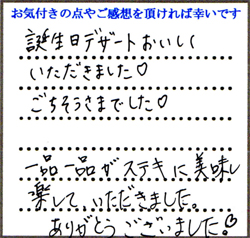 お気付きの点やご感想を頂ければ幸いです
誕生日デザートおいしく
いただきました♡
ごちそうさまでした♡
一品一品がステキに美味し
楽して、いただきました。
ありがとうございました!♡